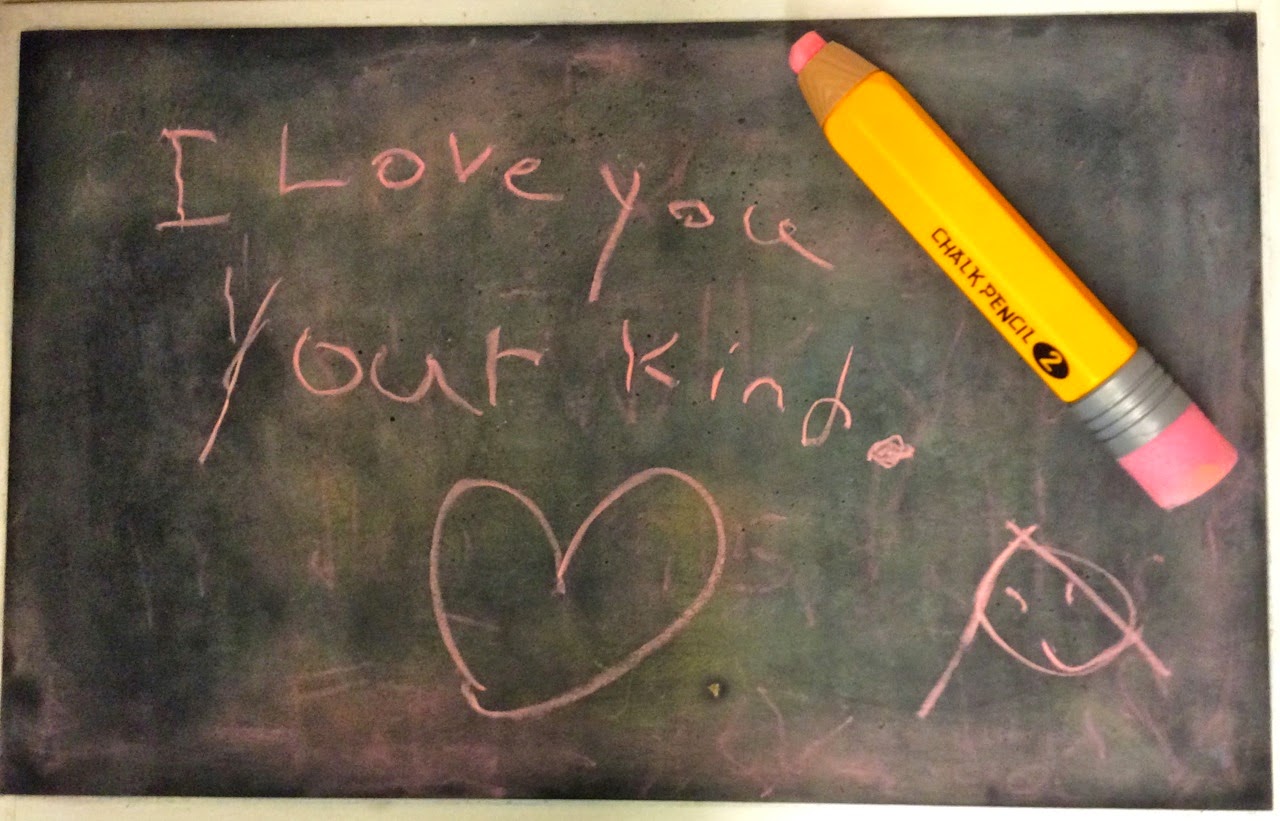 I Love you
Your kind.
CHALK PENCIL 2